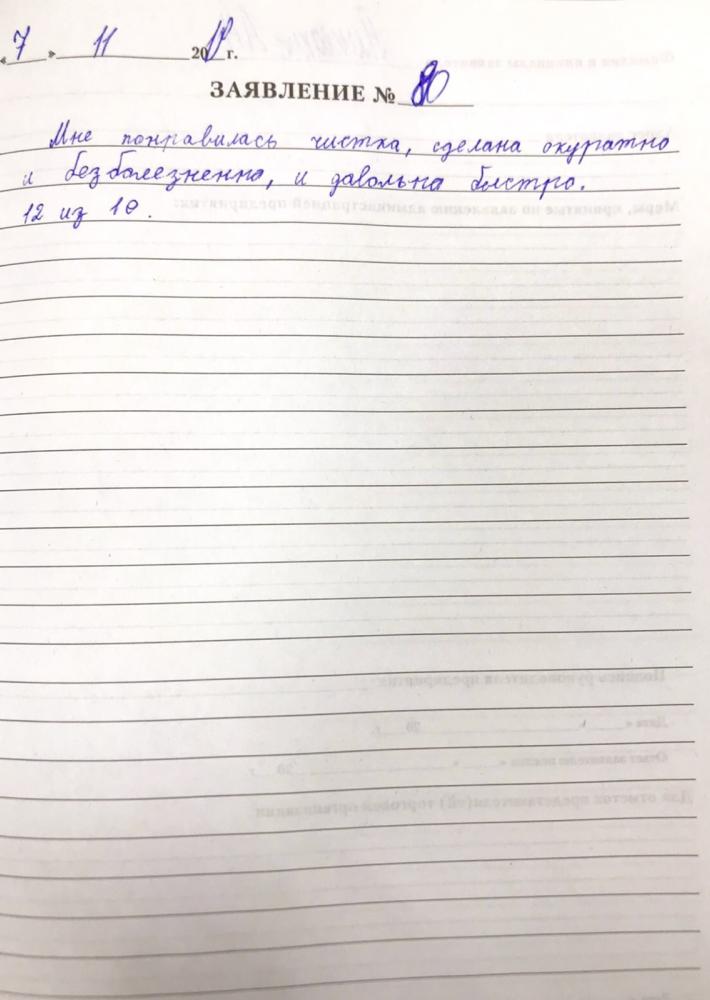 «7» 11 20 г.
ЗАЯВЛЕНИЕ № 80
Мне понравилась чистка, сделана окуратно
и безболезненно, и давольна быстро.
12 из 10.